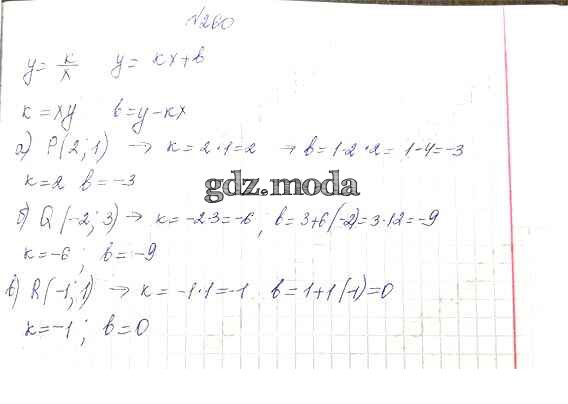 №260
y = k/x   y = kx+b
k = xy   b = y-kx
а) P(2; 1) → k = 2·1=2 → b = 1-2·2= 1-4=-3
k=2 b=-3
gdz.moda
б) Q(-2; 3) → k = -2·3=-6; b = 3+6(-2)=3·12=-9
k=-6; b=-9
в) R(-1; 1) → k = -1·1=-1 b = 1+1(-1)=0
k=-1; b=0